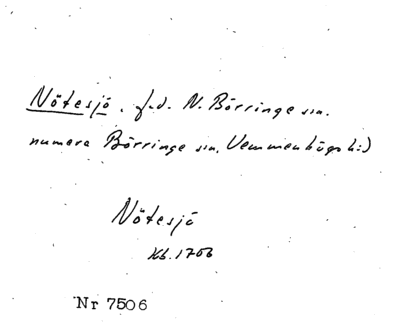 Nötesjö, f.d. N. Börringe sn.
numera Börringe sn. Vemmenhögs h:)
Nötesjö
Kb. 1706
Nr 7506